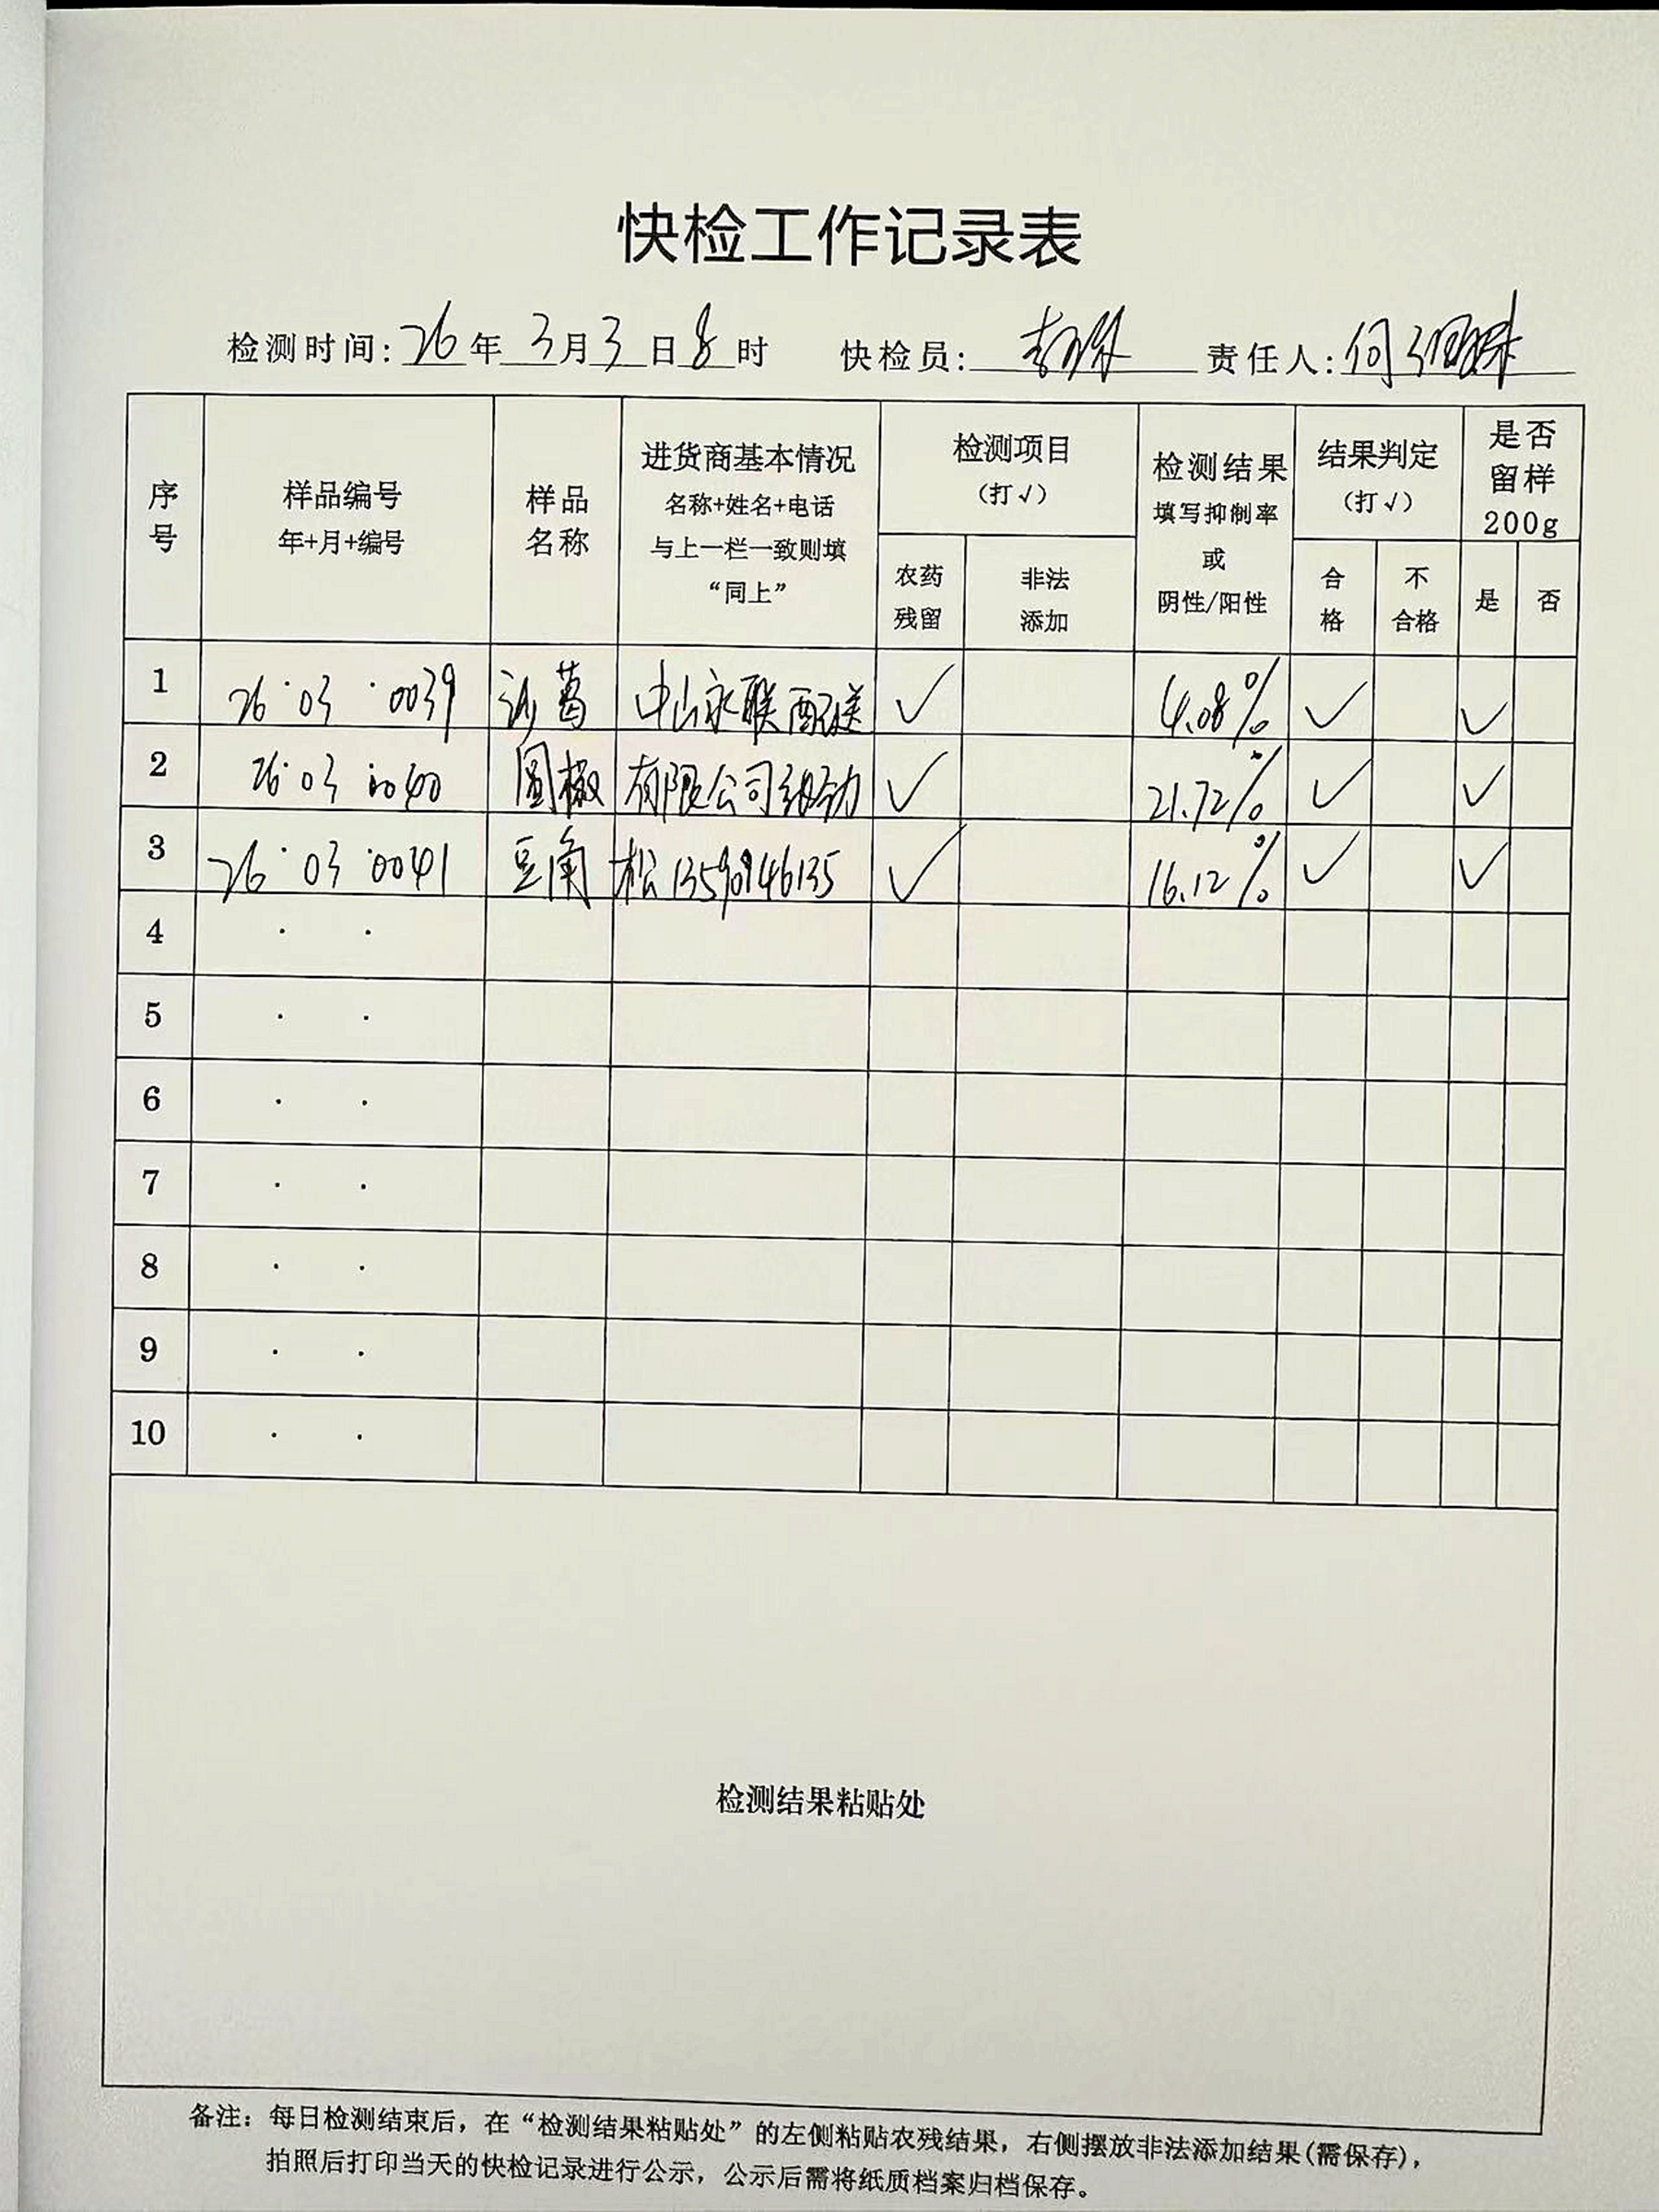 快检工作记录表
检测时间: 26年 3月 3日 8时 快检员: 责任人: 何
序号 样品编号 年+月+编号 样品名称 进货商基本情况 名称+姓名+电话 与上一栏一致则填“同上” 检测项目 (打√) 检测结果 填写抑制率 或 阴性/阳性 结果判定 (打√) 是否留样200g
农药残留 非法添加 合格 不合格 是 否
1 26·03·0039 沙葛 中山永联配送 √ 4.08% √ √
2 26·03·0040 圆椒 有限公司 √ 21.72% √ √
3 26·03·0041 豆角 松 13590946135 √ 16.12% √ √
4 · ·
5 · ·
6 · ·
7 · ·
8 · ·
9 · ·
10 · ·
检测结果粘贴处
备注：每日检测结束后，在“检测结果粘贴处”的左侧粘贴农残结果，右侧摆放非法添加结果(需保存)，
拍照后打印当天的快检记录进行公示，公示后需将纸质档案归档保存。